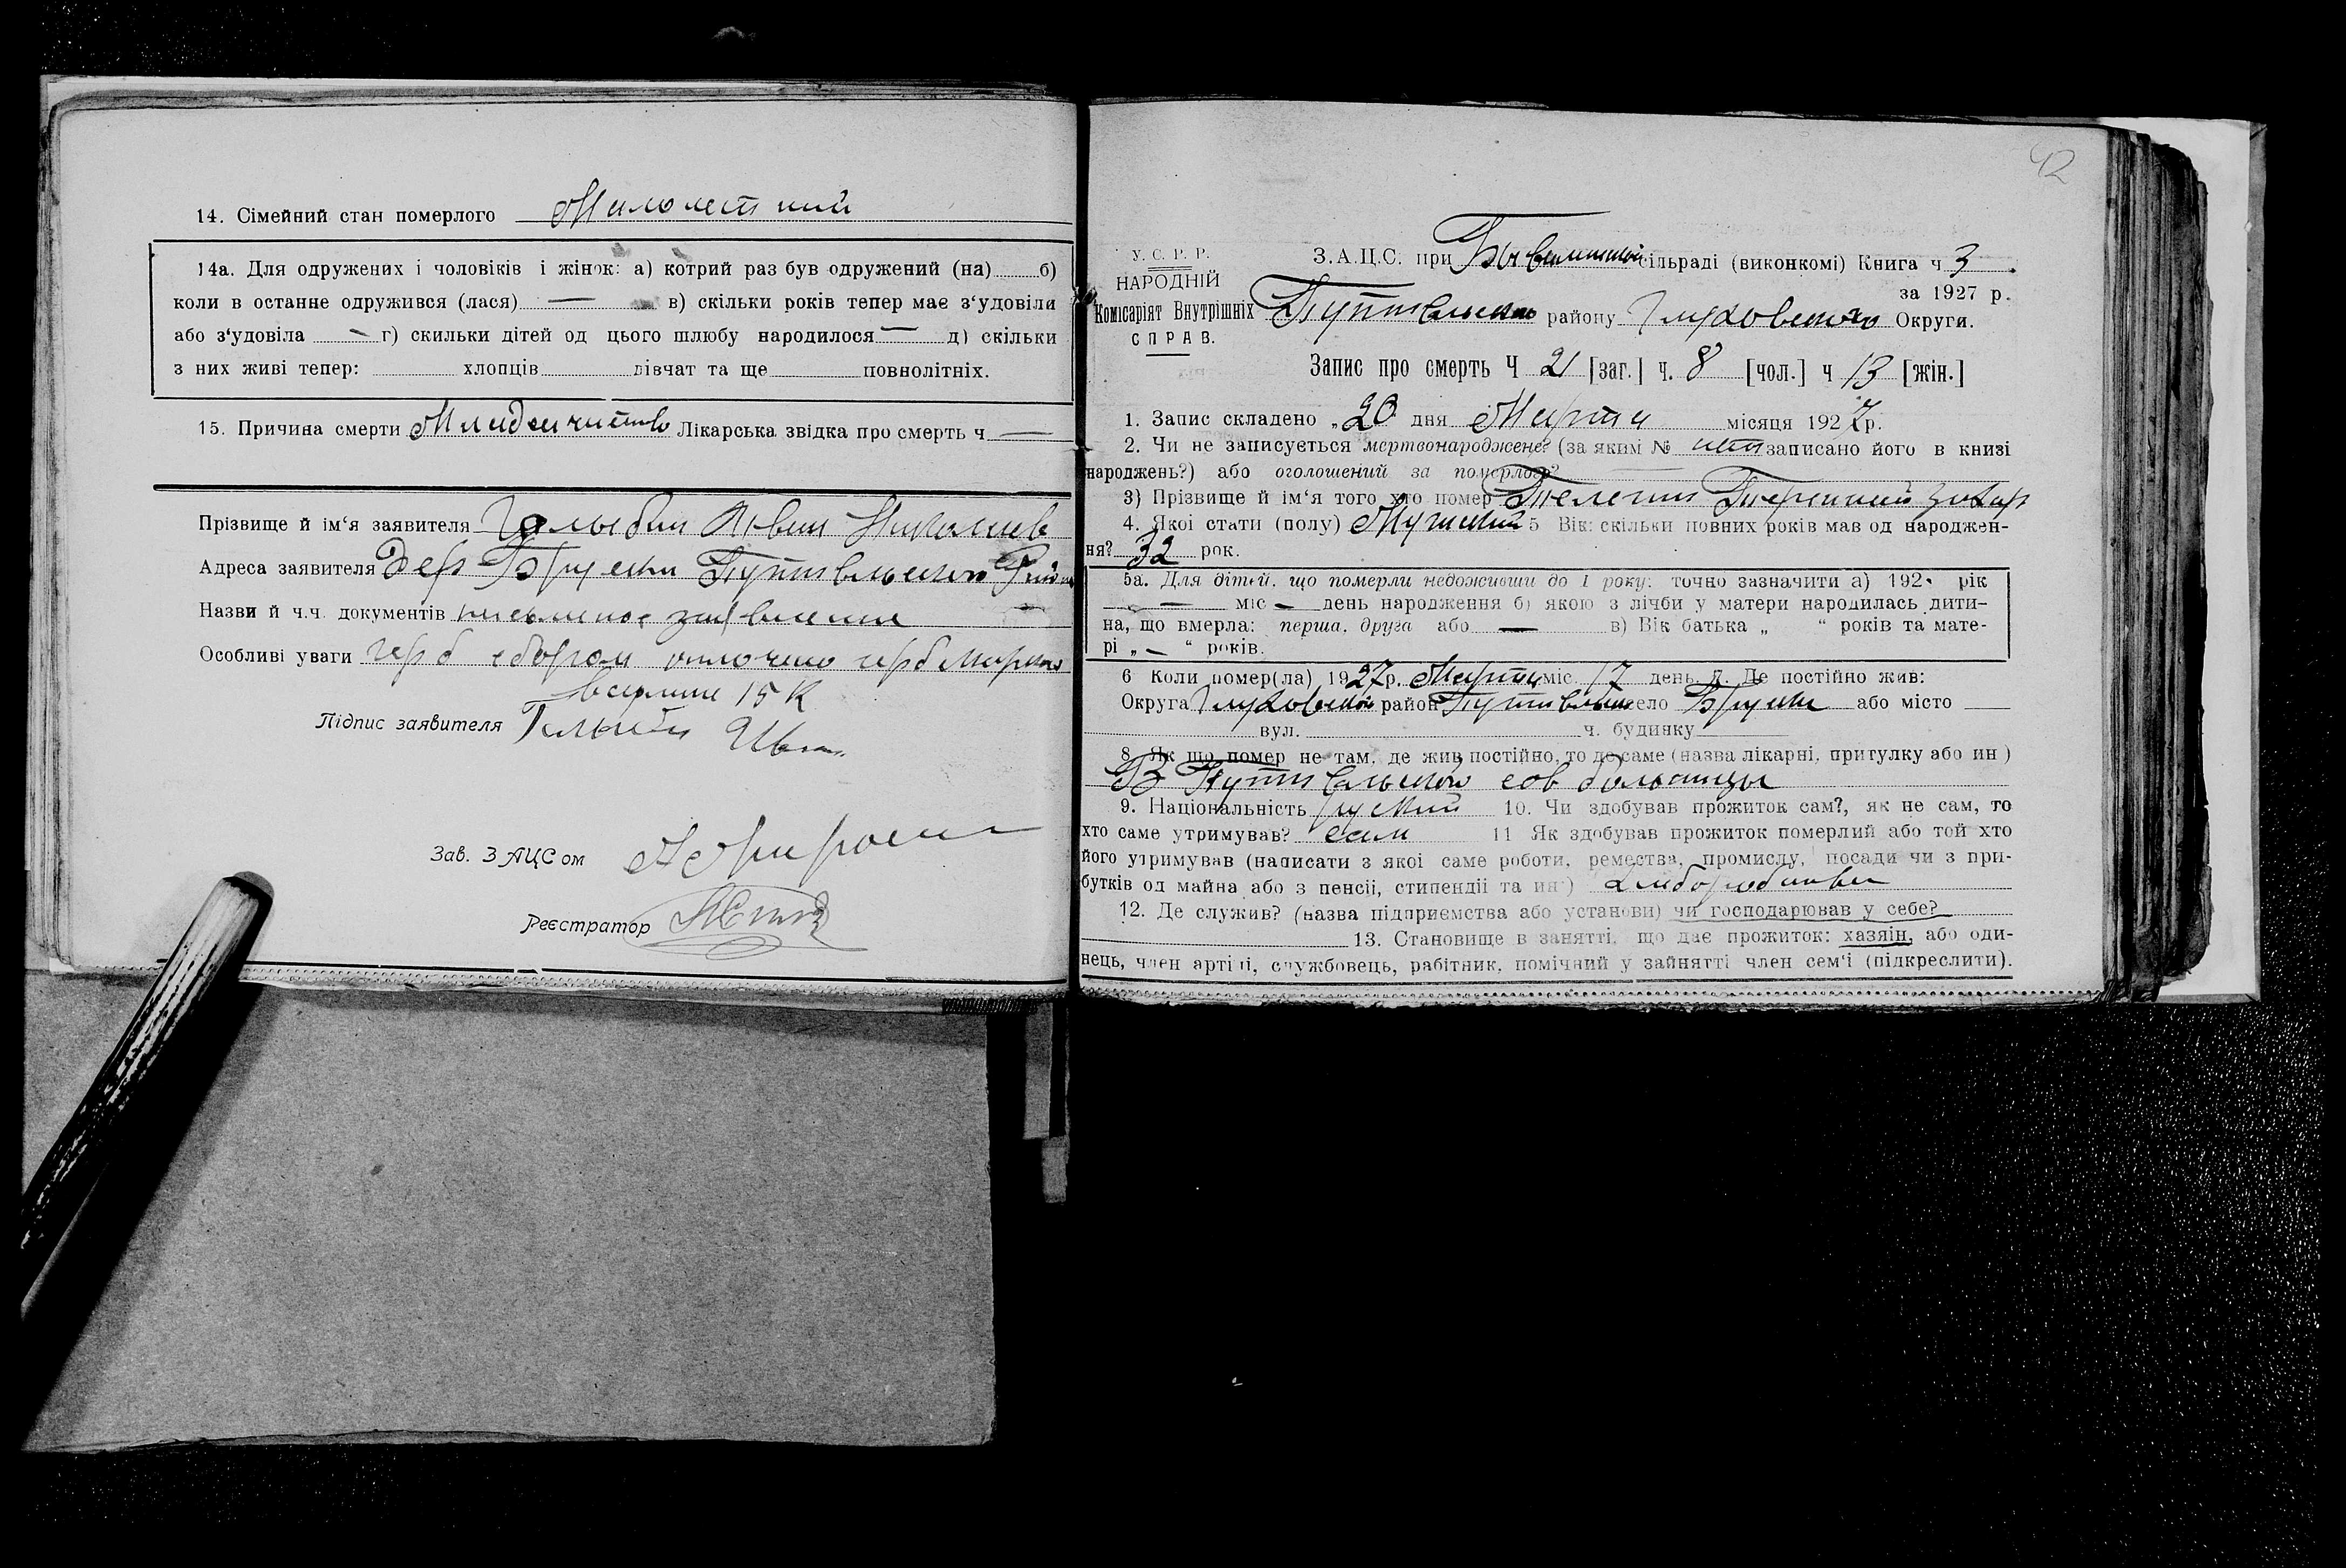 14. Сімейний стан померлого Малолетний
14а. Для одружених і чоловіків і жінок: а) котрий раз був одружений (на) б)
коли в останне одружився (лася) — в) скільки років тепер має з'удовіли
або з'удовіла — г) скильки дітей од цього шлюбу народилося — д) скільки
з них живі тепер: хлопців дівчат та ще повнолітніх.
15. Причина смерти Младенчество Лікарська звідка про смерть ч —
Прізвище й ім'я заявителя Иван
Адреса заявителя Дер Бруски Путивльского
Назви й ч.ч. документів письменое заявление
Особливі уваги герб сбором оплочено герб Марков
в сумме 15 к
Підпис заявителя
Зав. ЗАЦСом
Реєстратор
42
У. С. Р. Р.
НАРОДНІЙ
Комісаріят Внутрішніх
СПРАВ.
З.А.Ц.С. при сільраді (виконкомі) Книга ч 3.
за 1927 р.
Путивльского району Глуховского Округи.
Запис про смерть Ч 21 [заг.] ч. 8 [чол.] ч 13 [жін.]
1. Запис складено „20 дня Марта місяця 1927 р.
2. Чи не записується мертвонароджене? (за яким № нет записано його в книзі
народжень?) або оголошений за померлого?
3) Прізвище й ім'я того хто помер Телегин
4. Якої стати (полу) Мужской 5 Вік: скільки повних років мав од народжен-
ня? 32 рок.
5а. Для дітей, що померли недоживши до 1 року: точно зазначити а) 192 рік
— міс — день народження б) якою з лічби у матери народилась дити-
на, що вмерла: перша, друга або — в) Вік батька „ “ років та мате-
рі „ — “ років.
6 Коли помер(ла) 1927 р. Марта міс 17 день. 7. Де постійно жив:
Округа Глуховской район Путивльск село Бруски або місто —
вул. ч. будинку
8 Як що помер не там, де жив постійно, то де саме (назва лікарні, притулку або ин)
В Путивльской сов больницы
9. Національність руский 10. Чи здобував прожиток сам?, як не сам, то
хто саме утримував? сам 11 Як здобував прожиток померлий або той хто
його утримував (написати з якої саме роботи, ремества, промислу, посади чи з при-
бутків од майна або з пенсії, стипендії та ин:)
12. Де служив? (назва підприємства або установи) чи господарював у себе?
13. Становище в занятті, що дає прожиток: хазяїн, або оди-
нець, член артілі, службовець, рабітник, помічний у зайнятті член сем'ї (підкреслити).